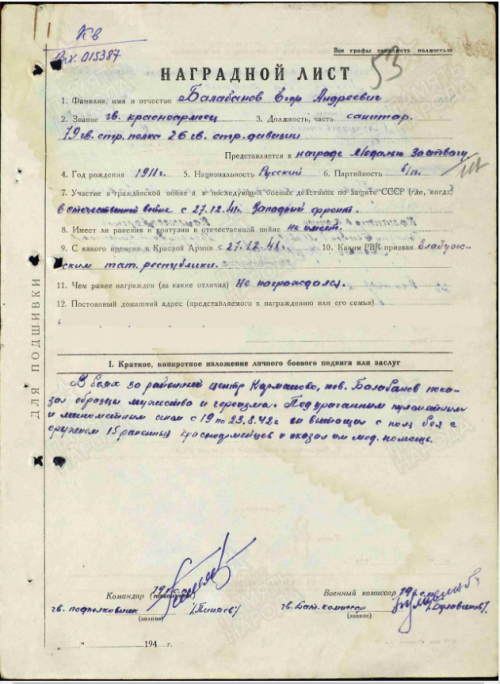 Кв
Вх. 015387
Все графы заполнять полностью
53
НАГРАДНОЙ ЛИСТ
1. Фамилия, имя и отчество Балабанов Егор Андреевич
2. Звание гв. красноармеец 3. Должность, часть санитар.
79 гв. стр. полка 26 гв. стр. дивизии
Представляется к награде Медалью За отвагу
4. Год рождения 1911 г. 5. Национальность Русский 6. Партийность б/п.
7. Участие в гражданской войне и в последующих боевых действиях по защите СССР (где, когда)
в отечественной войне с 27.12.41. Западный фронт.
8. Имеет ли ранения и контузии в отечественной войне не имеет.
9. С какого времени в Красной Армии с 27.12.41. 10. Каким РВК призван Елабуж-
ским тат. республики.
11. Чем ранее награжден (за какие отличия) Не награждался.
12. Постоянный домашний адрес (представляемого к награждению или его семьи)
ДЛЯ ПОДШИВКИ
I. Краткое, конкретное изложение личного боевого подвига или заслуг
В боях за районный центр Карманово, тов. Балабанов пока-
зал образцы мужества и героизма. Под ураганным пулеметным
и минометным огнем с 19 по 23.8.42 г. он вытащил с поля боя с
оружием 15 раненых красноармейцев и оказал им мед. помощь.
Командир 79 гв. с. п.
Военный комиссар 79 гв.
гв. подполковник
(звание)
гв. Бат. комиссар
(звание)
" " 194 г.